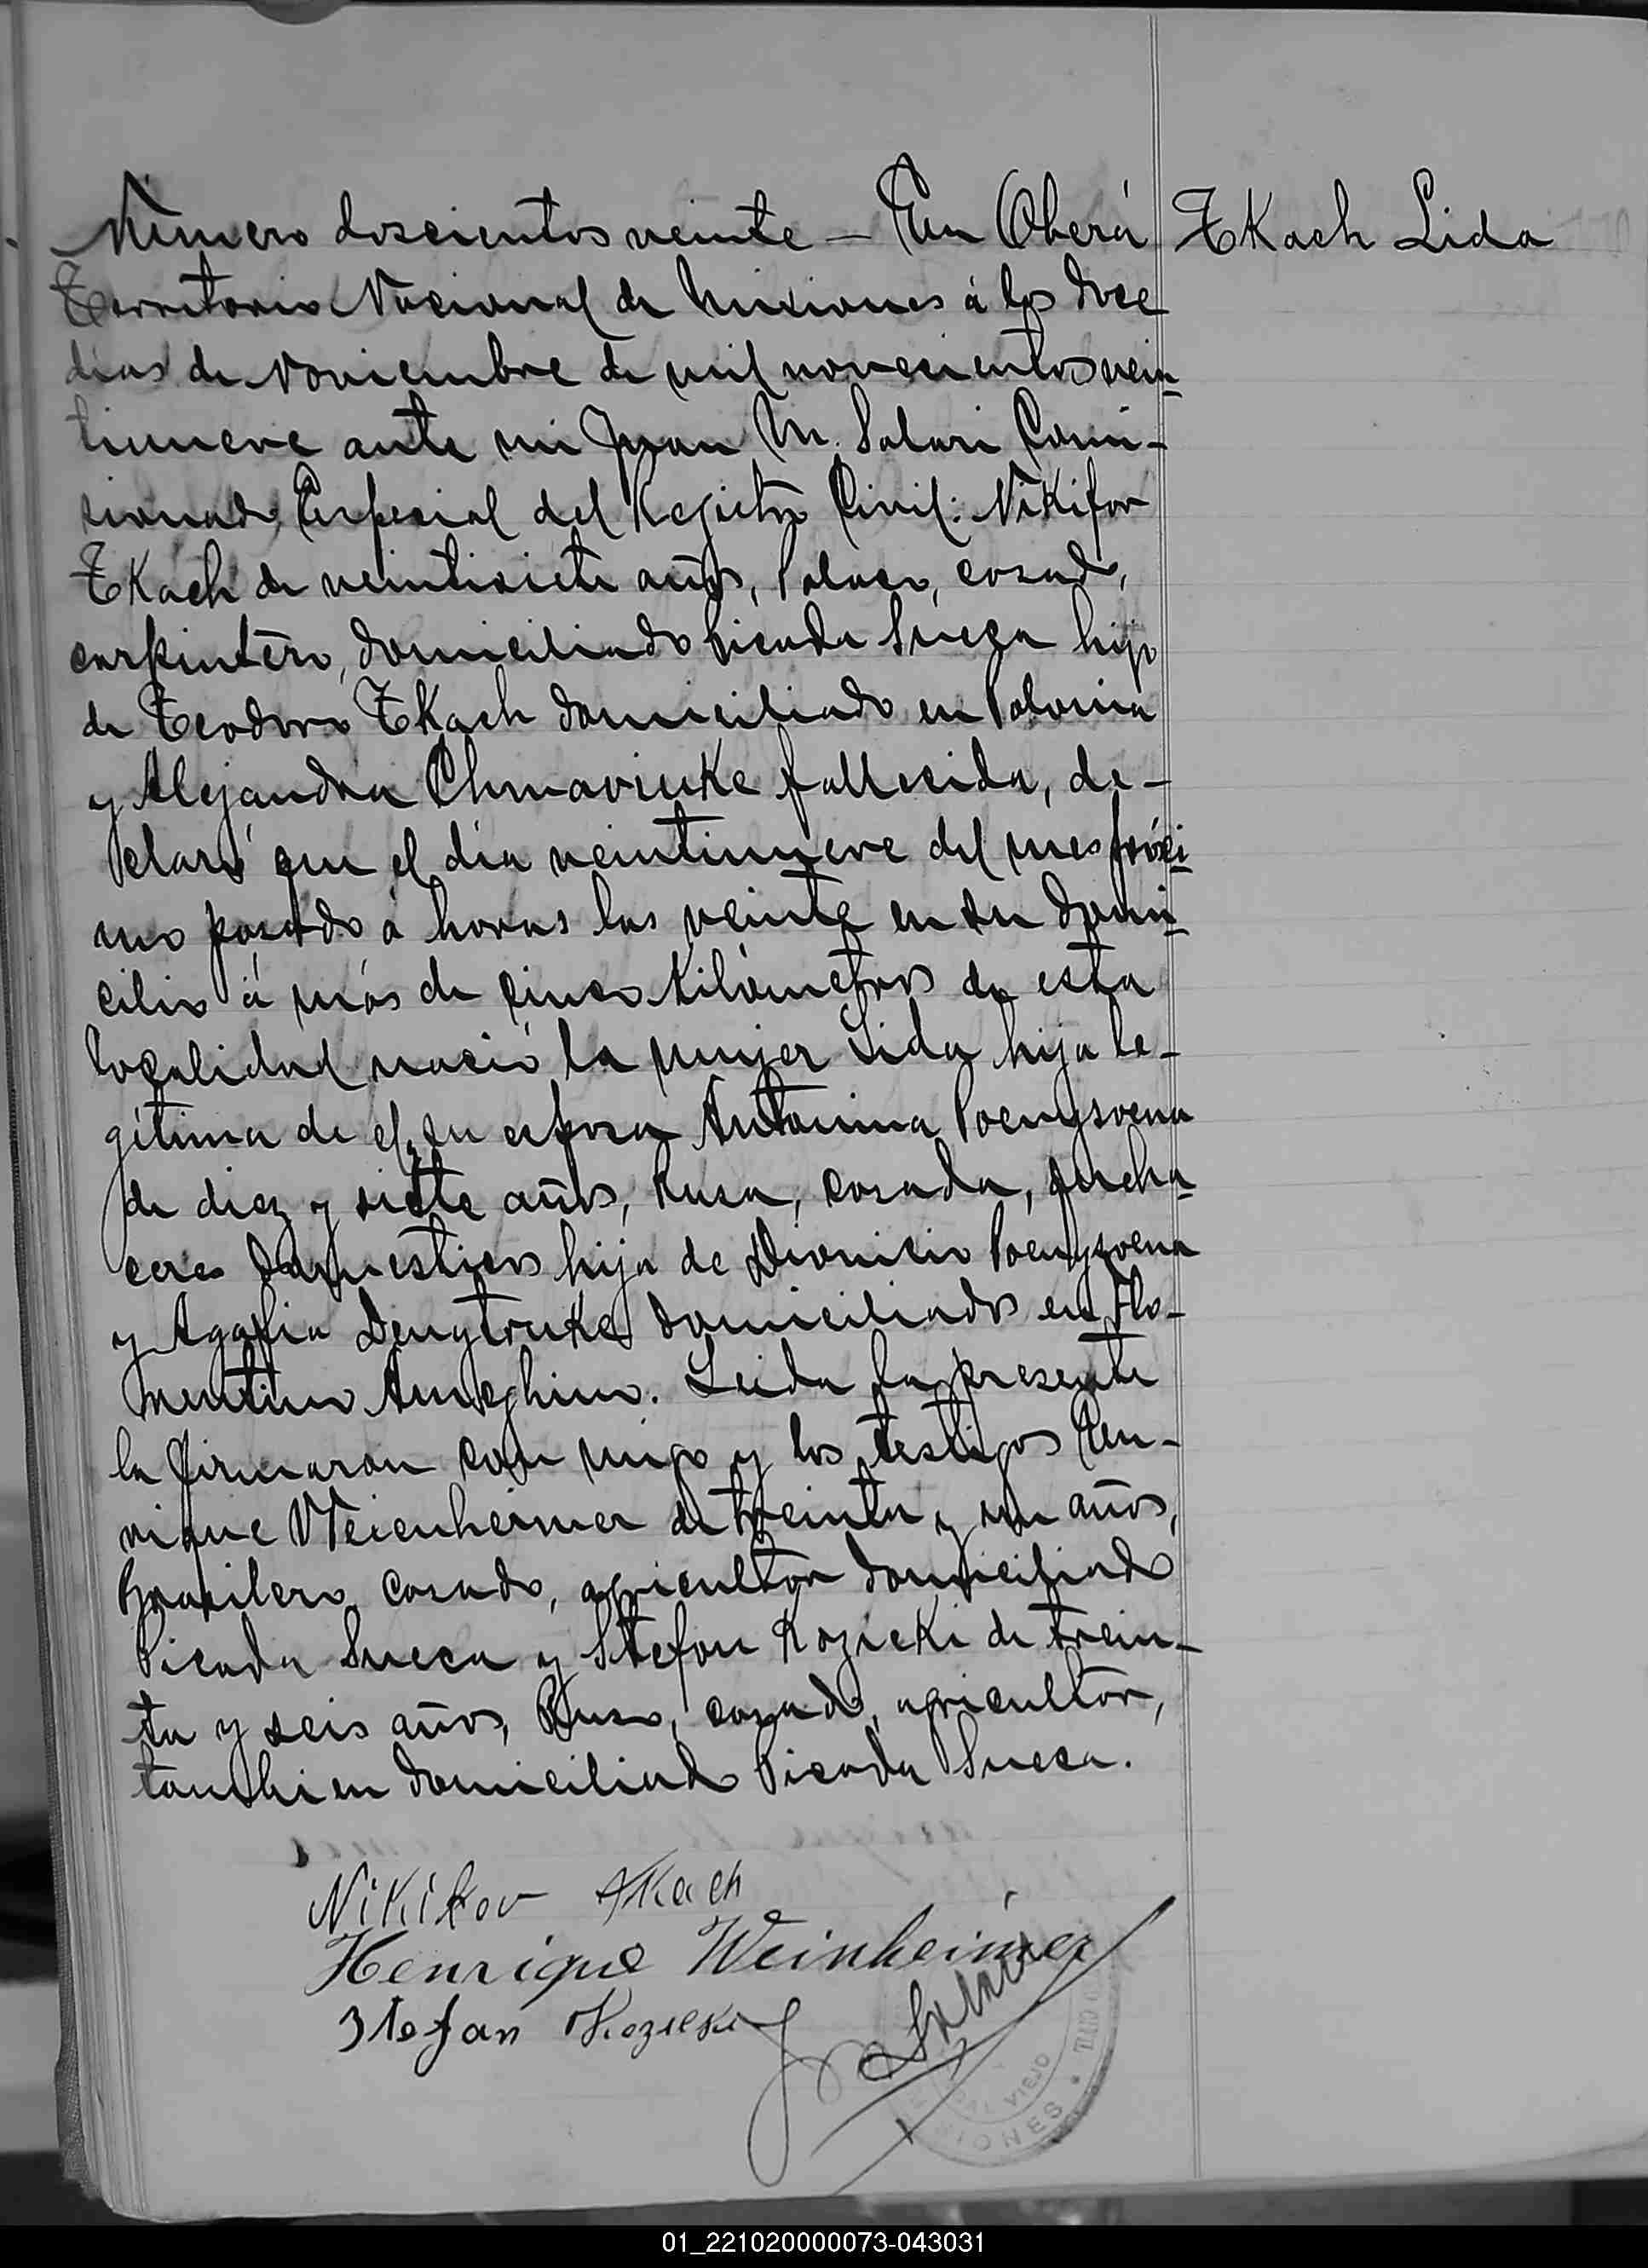 Número doscientos veinte – En Oberá
Tkach Lida
Territorio Nacional de Misiones á los doce
dias de Noviembre de mil novecientos vein-
tinueve ante mi Juan M. Salari Comi-
sionado Especial del Registro Civil: Nikifor
Tkach de veintisiete años, Polaco, casado,
carpintero, domiciliado Picada Sueca hijo
de Teodoro Tkach domiciliado en Polonia
y Alejandra Chmaviuke fallecida, de-
claró que el día veintinueve del mes próxi-
mo pasado á horas las veinte en su domi-
cilio á más de cinco kilómetros de esta
localidad nació la mujer Lida hija le-
gítima de el y su esposa Antonina
de diez y siete años, Rusa, casada, queha-
ceres domesticos hija de Dionicio
y Agafia domiciliados en Flo-
rentino Ameghino. Leida la presente
la firmaron con migo y los testigos En-
rique Weienheimer de treinta y un años,
Brasilero, casado, agricultor domiciliado
Picada Sueca y Stefan Kozicki de trein-
ta y seis años, Ruso, casado, agricultor,
tambien domiciliado Picada Sueca.
Nikifor Tkach
Henrique Weinheimer
Stefan Kozicki
Salari
VIEJO
01_221020000073-043031